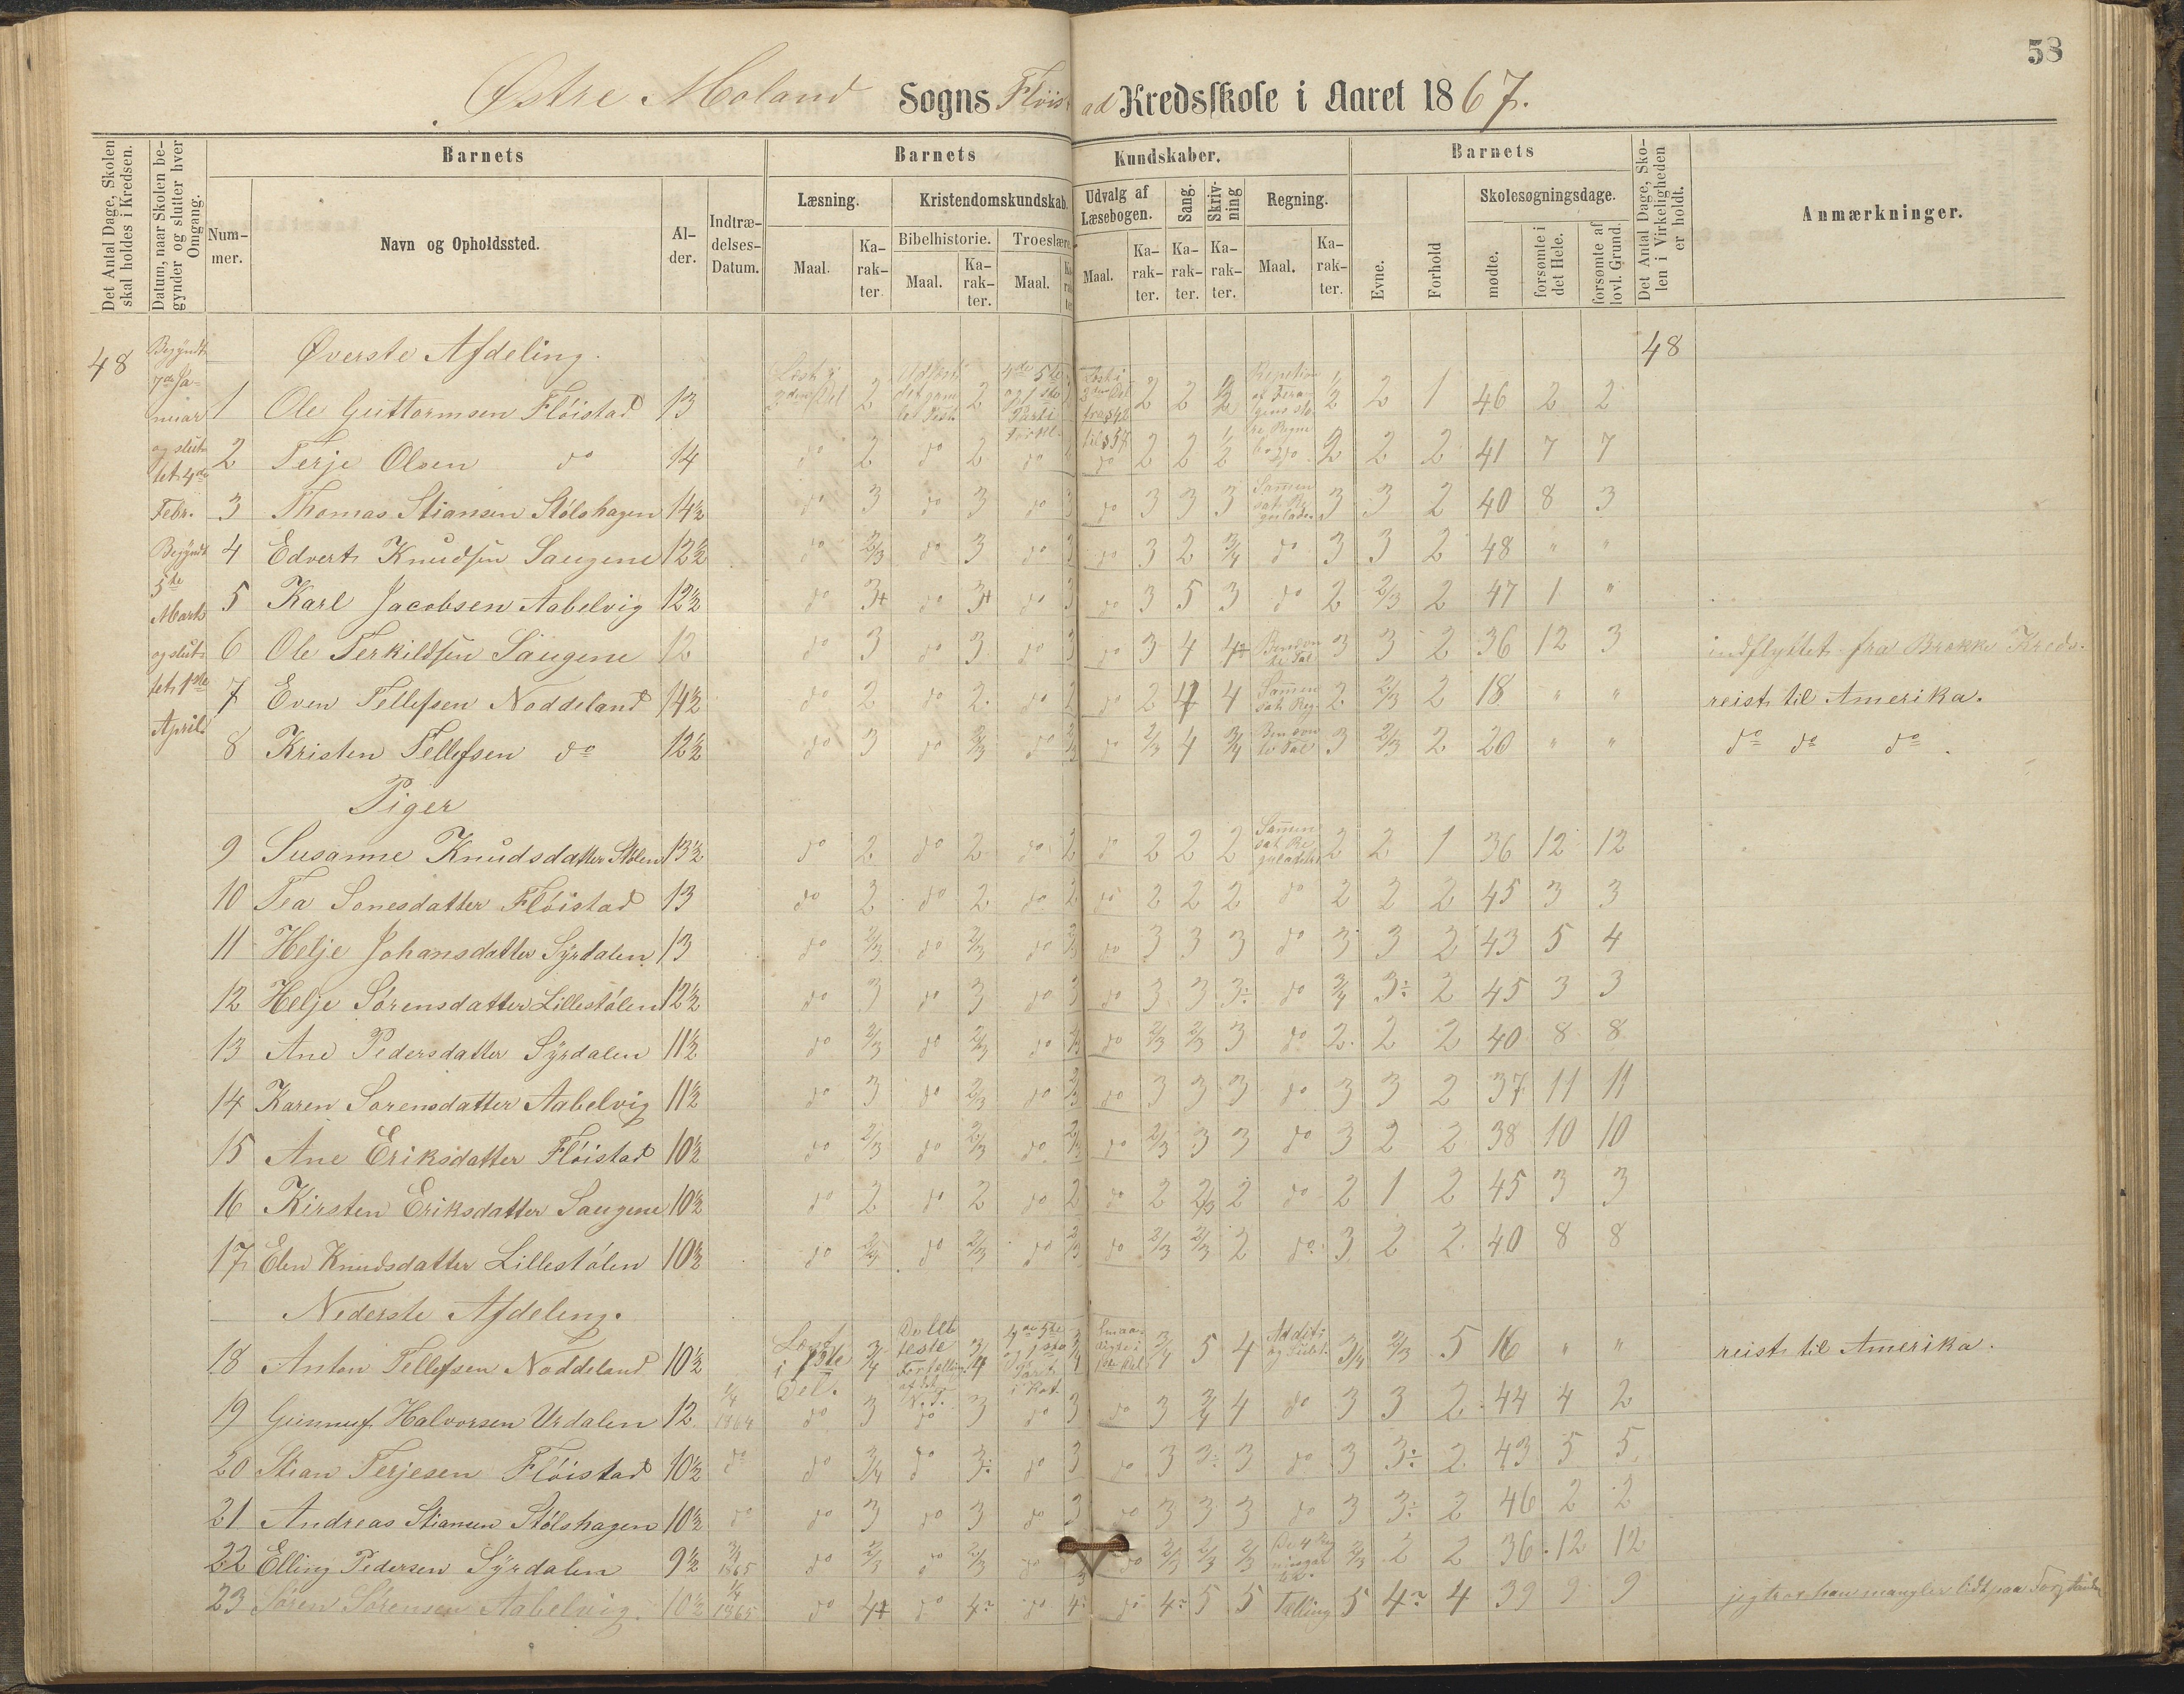 58
Østre Moland Sogns Fløistad Kredsskole i Aaret 1867.
Det Antal Dage, Skolen skal holdes i Kredsen.
Datum, naar Skolen begynder og slutter hver Omgang.
Barnets
Barnets Kundskaber.
Barnets
Det Antal Dage, Skolen i Virkeligheden er holdt.
Anmærkninger.
Nummer.
Navn og Opholdssted.
Alder.
Indtrædelses-Datum.
Læsning.
Kristendomskundskab.
Udvalg af Læsebogen.
Sang.
Skrivning
Regning.
Evne.
Forhold
Skolesøgningsdage.
Bibelhistorie.
Troeslære.
Maal. Karakter. Maal. Karakter. Maal. Karakter. Maal. Karakter. Karakter. Karakter. Maal. Karakter.
mødte.
forsømte i det Hele.
forsømte af lovl. Grund.
48
Begyndt 7de Januar og sluttet 4de Febr.
Begyndt 5te Marts og sluttet 1ste April.
Øverste Afdeling.
48
1 Ole Guttormsen Fløistad 13 2 2 2 2 1/2 2 1 46 2 2
2 Terje Olsen do 14 do 2 do 2 do do 2 2 1/2 do 2 2 2 41 7 7
3 Thomas Stiansen Stølshagen 14½ do 3 do 3 do 3 do 3 3 3 3 3 2 40 8 3
4 Edvert Knudsen Saugene 12½ do 2/3 do 3 do 3 do 3 2 3/4 do 3 3 2 48 " "
5 Karl Jacobsen Aabelvig 12½ do 3+ do 3+ do 3 do 3 5 3 do 2 2/3 2 47 1 "
6 Ole Terkildsen Saugene 12 do 3 do 3 do 3 do 3 4 3 3 2 36 12 3 indflyttet fra Brække Kreds.
7 Even Tellefsen Noddeland 14½ do 2 do 2 do 2 do 2 4 4 2 2/3 2 18 " " reist til Amerika.
8 Kristen Tellefsen do 12½ do 3 do 2/3 do 2/3 do 2/3 4 3/4 3 2/3 2 20 " " do do do.
Piger
9 Susanne Knudsdatter Stølen 13½ do 2 do 2 do 2 do 2 2 2 2 2 1 36 12 12
10 Tea Sonesdatter Fløistad 13 do 2 do 2 do 2 do 2 2 2 do 2 2 2 45 3 3
11 Helje Johansdatter Syrdalen 13 do 2/3 do 2/3 do 2/3 do 3 3 3 do 3 3 2 43 5 4
12 Helje Sørensdatter Lillestølen 12½ do 3 do 3 do 3 do 3 3 3÷ do 3/4 3÷ 2 45 3 3
13 Ane Pedersdatter Syrdalen 11½ do 2/3 do 2/3 do 2/3 do 2/3 2/3 3 do 2 2 2 40 8 8
14 Karen Sorensdatter Aabelvig 11½ do 3 do 2/3 do 2/3 do 3 3 3 do 3 3 2 37 11 11
15 Ane Eriksdatter Fløistad 10½ do 2/3 do 2/3 do 2/3 do 2/3 3 3 do 3 2 2 38 10 10
16 Kirsten Eriksdatter Saugene 10½ do 2 do 2 do 2 do 2 2/3 2 do 2 1 2 45 3 3
17 Elen Knudsdatter Lillestølen 10½ do do 2/3 do 2/3 do 2/3 2/3 2 do 3 2 2 40 8 8
Nederste Afdeling.
18 Anton Tellefsen Noddeland 10½ Læst i 1ste Del. 3/4 3/4 5 4 3/4 2/3 5 16 " " reist til Amerika.
19 Gunnuf Halvorsen Urdalen 12 1/4 1864 do 3 do 3 do 3 do 3 3/4 4 do 3 3 2 44 4 2
20 Stian Terjesen Fløistad 10½ do do 3/4 do 3÷ do 3 do 3 3÷ 3 do 3 3÷ 2 43 5 5
21 Andreas Stiansen Stølshagen 10½ do do 3 do 3 do 3 do 3 3 3 do 3 3÷ 2 46 2 2
22 Elling Pedersen Syrdalen 9½ 1865 do 2/3 do 2/3 do do 2/3 2/3 2/3 2/3 2 2 36 12 12
23 Søren Sørensen Aabelvig 10½ 1/4 1865 do do do do 5 5 Tælling 5 4 39 9 9 jeg tror han mangler lidt paa Forstanden